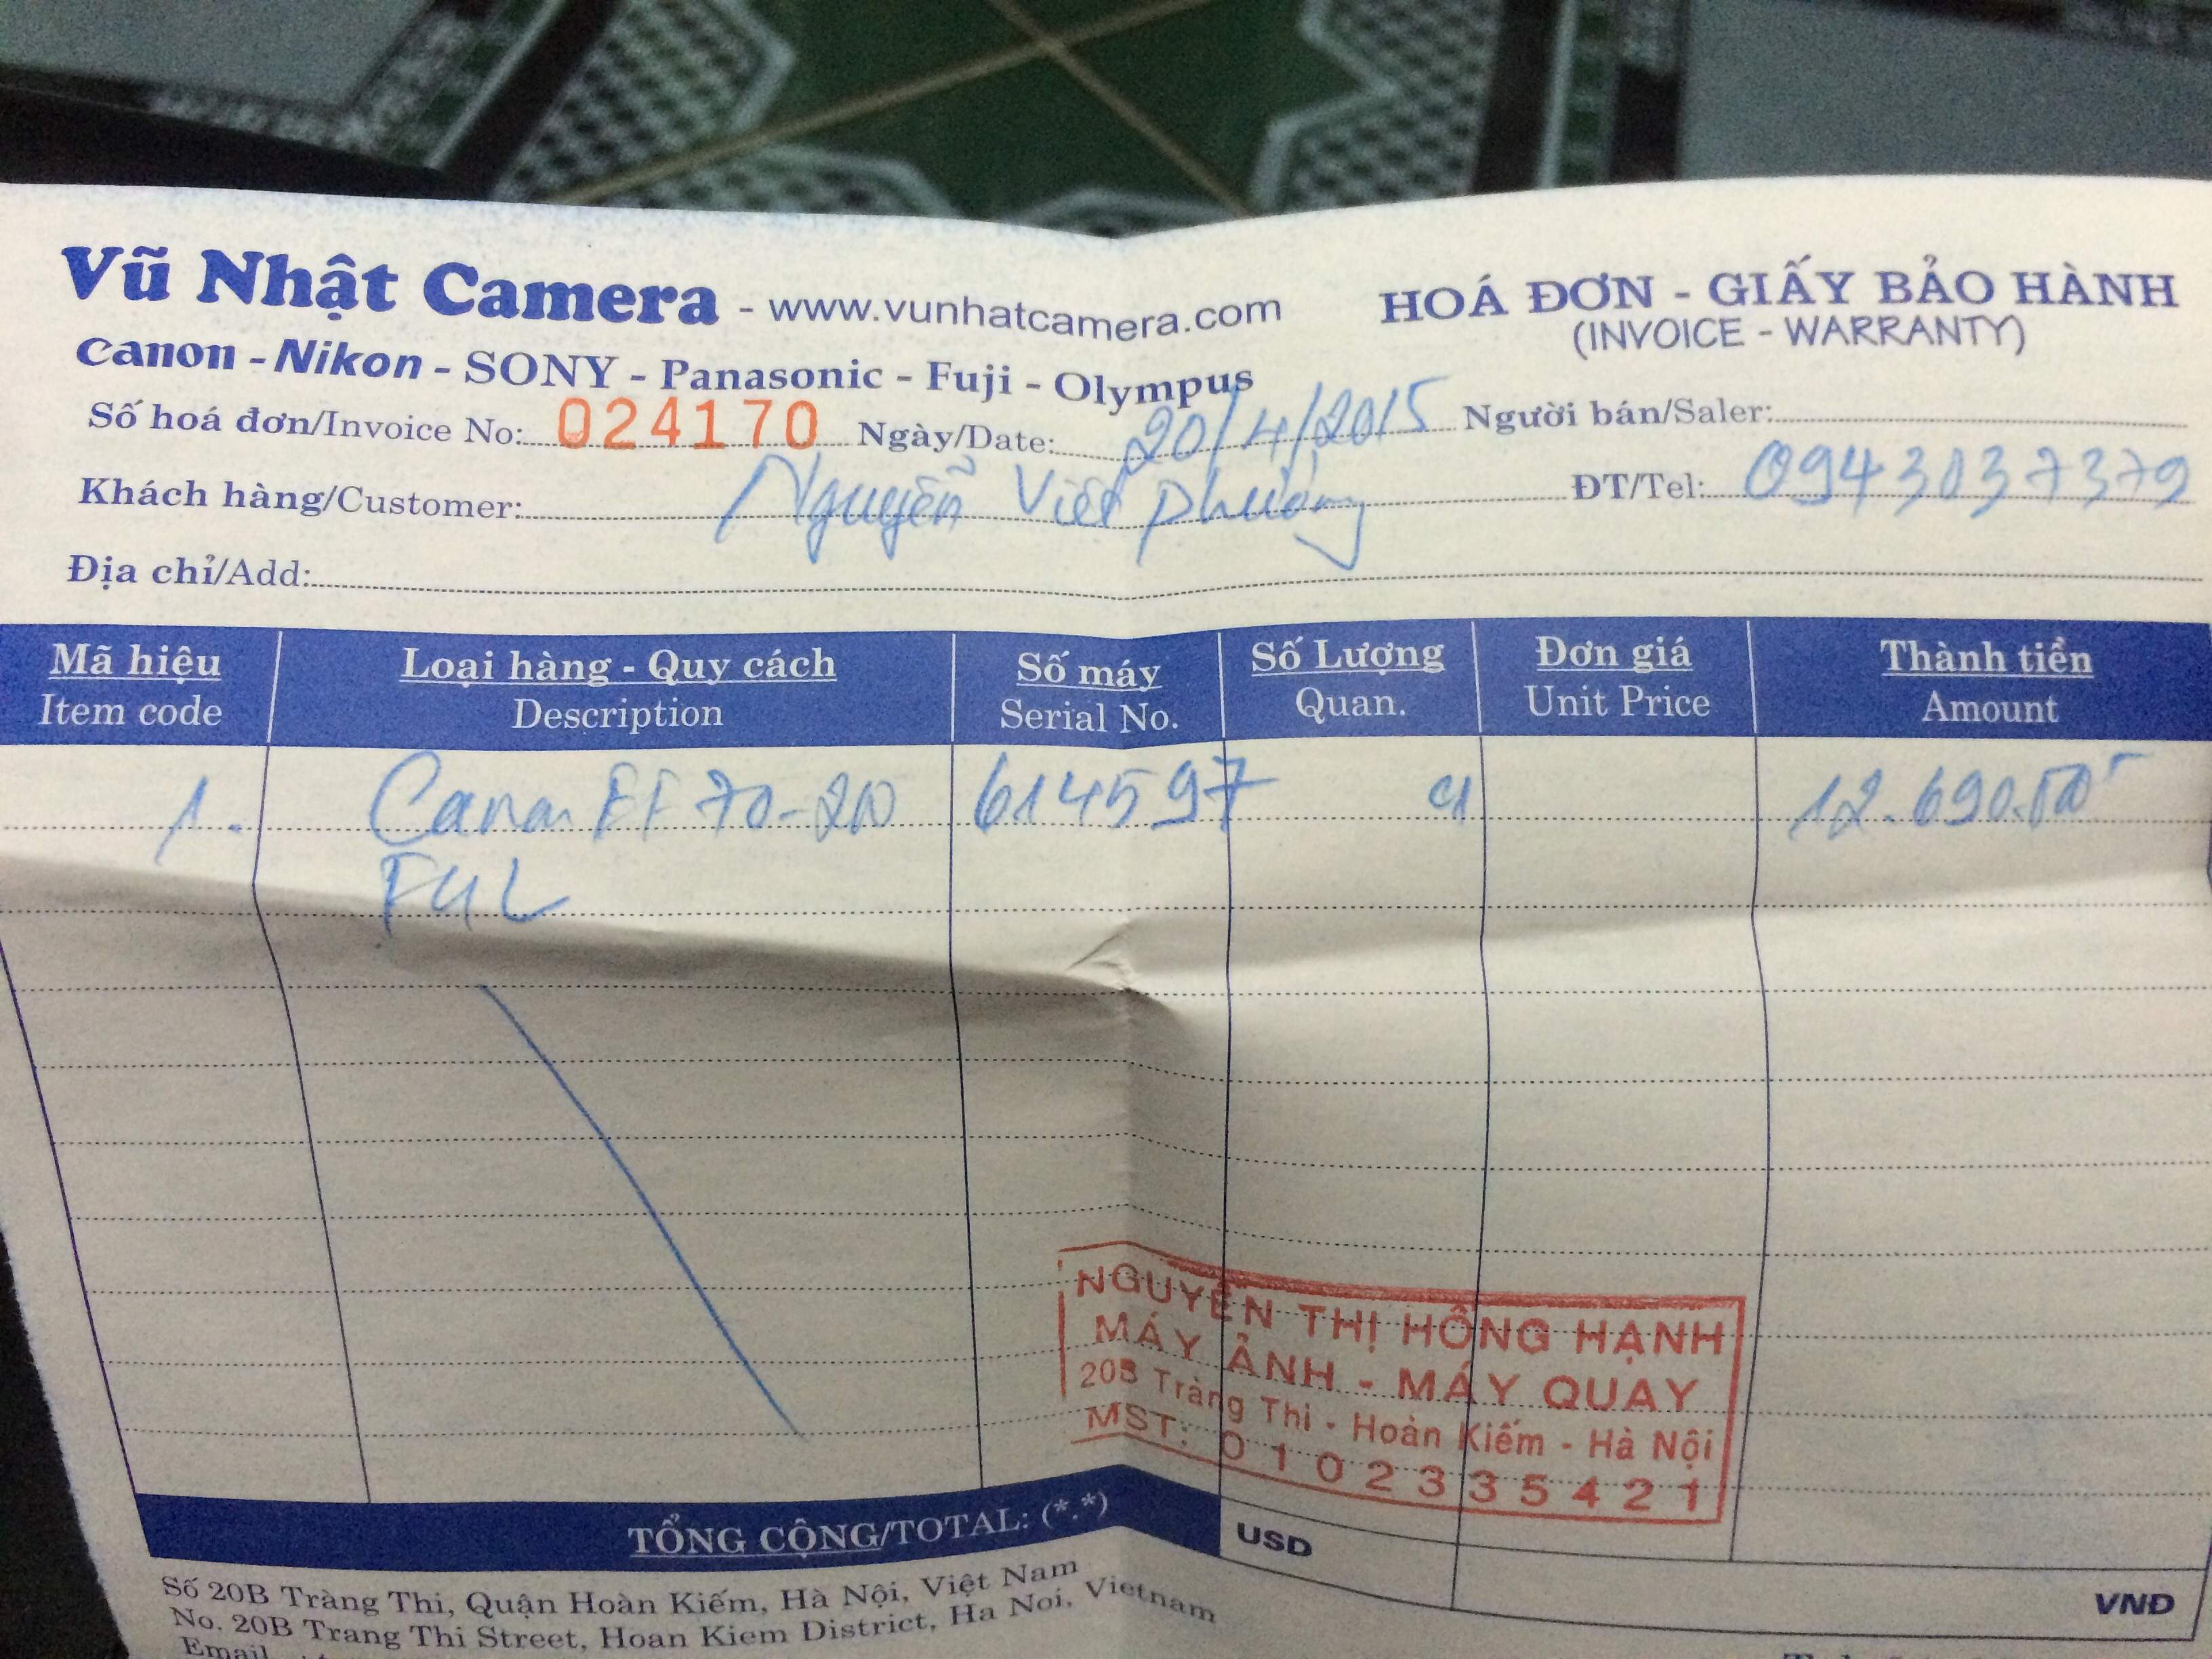 Vũ Nhật Camera - www.vunhatcamera.com
HOÁ ĐƠN - GIẤY BẢO HÀNH
(INVOICE - WARRANTY)
Canon - Nikon - SONY - Panasonic - Fuji - Olympus
Số hoá đơn/Invoice No: 024170 Ngày/Date: 20/4/2015 Người bán/Saler:
Khách hàng/Customer: Nguyễn Viết Phương ĐT/Tel: 0943037379
Địa chỉ/Add:
Mã hiệu Loại hàng - Quy cách Số máy Số Lượng Đơn giá Thành tiền
Item code Description Serial No. Quan. Unit Price Amount
1. Canon EF 70-200 614597 01 12.690.000
F4L
NGUYỄN THỊ HỒNG HẠNH
MÁY ẢNH - MÁY QUAY
20B Tràng Thi - Hoàn Kiếm - Hà Nội
MST: 0102335421
TỔNG CỘNG/TOTAL: (*.*) USD VNĐ
Số 20B Tràng Thi, Quận Hoàn Kiếm, Hà Nội, Việt Nam
No. 20B Trang Thi Street, Hoan Kiem District, Ha Noi, Vietnam
Email